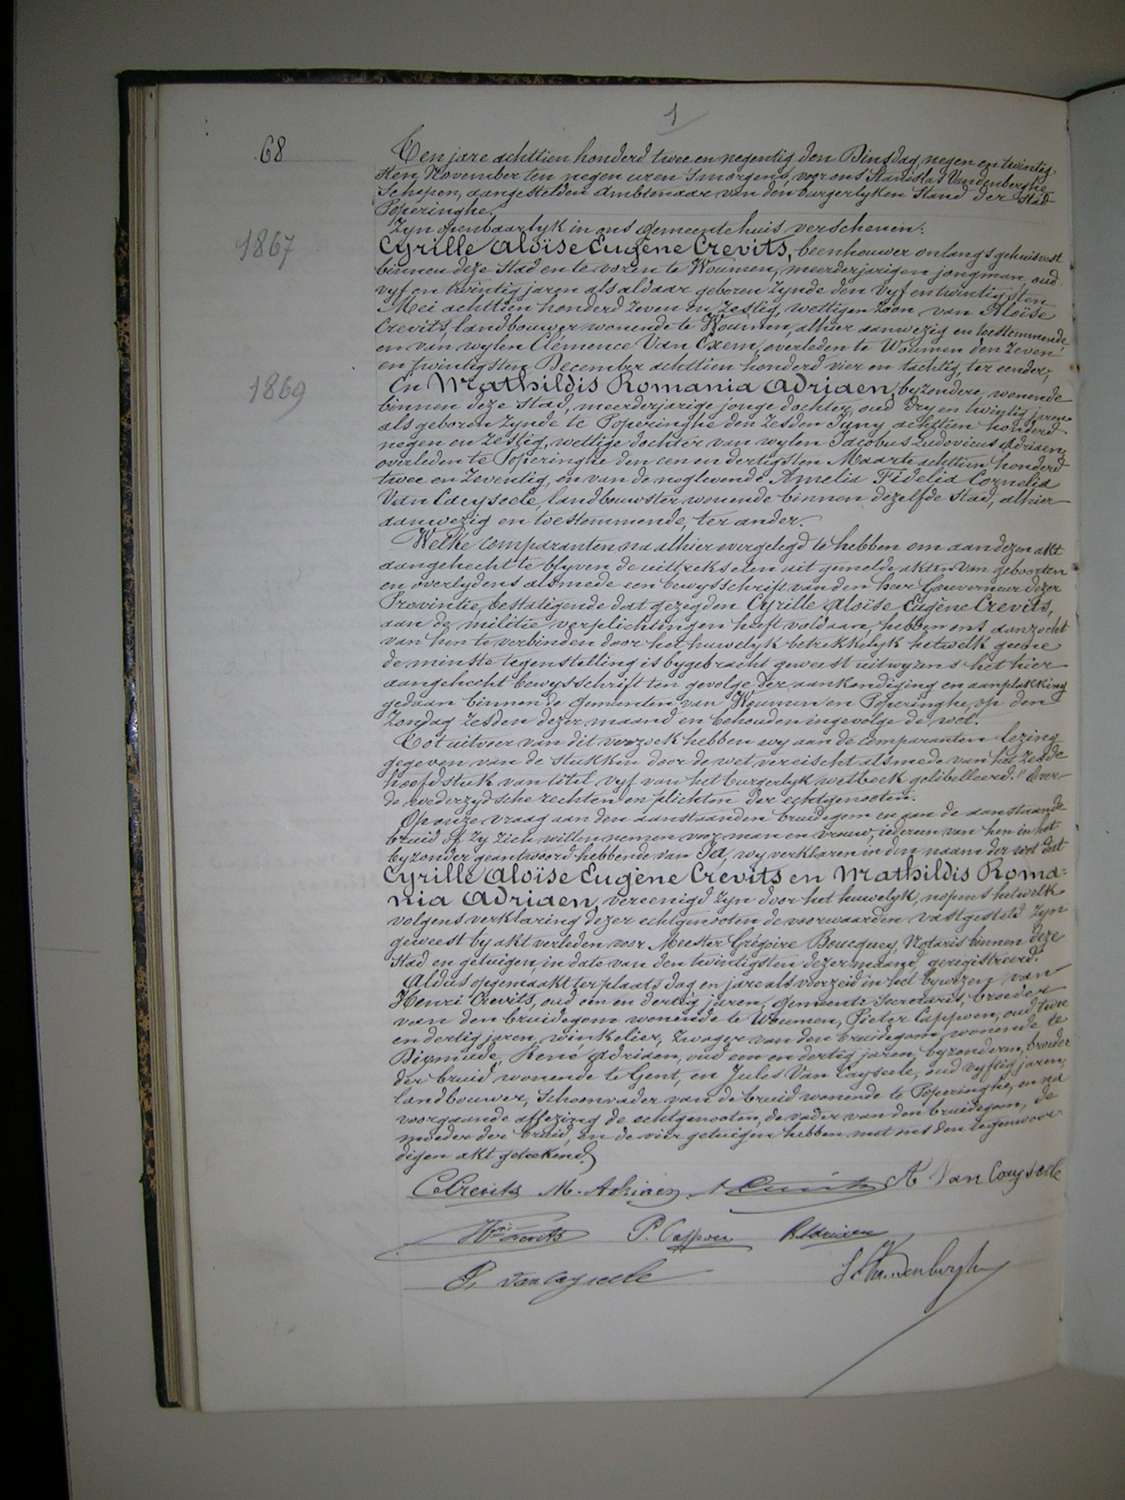 1
68
Ten jare achttien honderd twee en negentig den Dinsdag, negen en twintig-
sten November ten negen uren smorgens, voor ons Stanislas Vandenberghe
Schepen, aangestelden Ambtenaar van den burgerlyken Stand der Stad
Poperinghe,
Zyn openbaarlyk in ons gemeentehuis verschenen:
1867
Cyrille Aloïse Eugène Crevits, beenhouwer onlangs gehuisvest
binnen deze Stad en te voren te Woumen, meerderjarigen jongman, oud
vyf en twintig jaren als aldaar geboren zynde den vyf en twintigsten
Mei achttien honderd zeven en zestig, wettigen zoon van Aloïse
Crevits, landbouwer wonende te Woumen, alhier aanwezig en toestemmende,
en van wylen Clemence Van Exem, overleden te Woumen den zeven
en twintigsten December achttien honderd vier en tachtig, ter eender;
1869
En Mathildis Romania Adriaen, byzondere, wonende
binnen deze Stad, meerderjarige jonge dochter, oud dry en twintig jaren
als geboren zynde te Poperinghe den zesden Juny achttien honderd
negen en zestig, wettige dochter van wylen Jacobus Ludovicus Adriaen,
overleden te Poperinghe den een en dertigsten Maarte achttien honderd
twee en zeventig, en van de noglevende Amelia Fidelia Cornelia
Van Cayseele, landbouwster wonende binnen dezelfde Stad, alhier
aanwezig en toestemmende, ter ander.
Welke comparanten na alhier overgelegd te hebben om aan dezen akt
aangehecht te blyven de uittrekselen uit gemelde akten van geboorten
en overlydens alsmede een bewysschrift van den heer Gouverneur dezer
Provintie, bestatigende dat gezegden Cyrille Aloïse Eugène Crevits,
aan de militie verplichtingen heeft voldaan, hebben ons aanzocht
van hen te verbinden door het huwelyk betrekkelyk hetwelk geene
de minste tegenstelling is bygebracht geweest uitwyzens het hier
aangehecht bewysschrift ten gevolge der aankondiging en aanplakking
gedaan binnen de Gemeenten van Woumen en Poperinghe, op den
Zondag zesden dezer maand en behouden ingevolge de wet.
Tot uitvoer van dit verzoek hebben wy aan de comparanten lezing
gegeven van de stukken door de wet vereischt alsmede van het zesde
hoofdstuk van titel vyf van het burgerlyk wetboek gelibelleerd: "Over
de wederzydsche rechten en plichten der echtgenooten.
Op onze vraag aan den aanstaanden bruidegom en aan de aanstaande
bruid of zy zich willen nemen voor man en vrouw, iedereen van hen in het
byzonder geantwoord hebbende van Ja, wy verklaren in den naam der wet dat
Cyrille Aloïse Eugène Crevits en Mathildis Roma=
nia Adriaen, vereenigd zyn door het huwelyk, nopens hetwelk
volgens verklaring dezer echtgenooten de voorwaarden vastgesteld zyn
geweest by akt verleden voor Meester Grégoire Boucquey, Notaris binnen deze
Stad en getuigen, in date van den twintigsten dezer maand, geregistreerd.
Aldus opgemaakt ter plaats dag en jare als voorzeid in het bywezen van
Henri Crevits, oud een en dertig jaren, gemeente Secretaris, broeder
van den bruidegom wonende te Woumen, Pieter Cappoen, oud twee
en dertig jaren, winkelier, zwager van den bruidegom, wonende te
Dixmude, René Adriaen, oud een en dertig jaren, byzonderen, broeder
der bruid wonende te Gent, en Jules Van Cayseele, oud vyftig jaren,
landbouwer, schoonvader van de bruid wonende te Poperinghe, en na
voorgaande aflezing de echtgenooten, de vader van den bruidegom, de
moeder der bruid, en de vier getuigen hebben met ons den tegenwoor-
digen akt geteekend.
C. Crevits M. Adriaen A. Crevits A Van Cayseele
Hri Crevits P. Cappoen R. Adriaen
J. Van Cayseele St. Vandenberghe